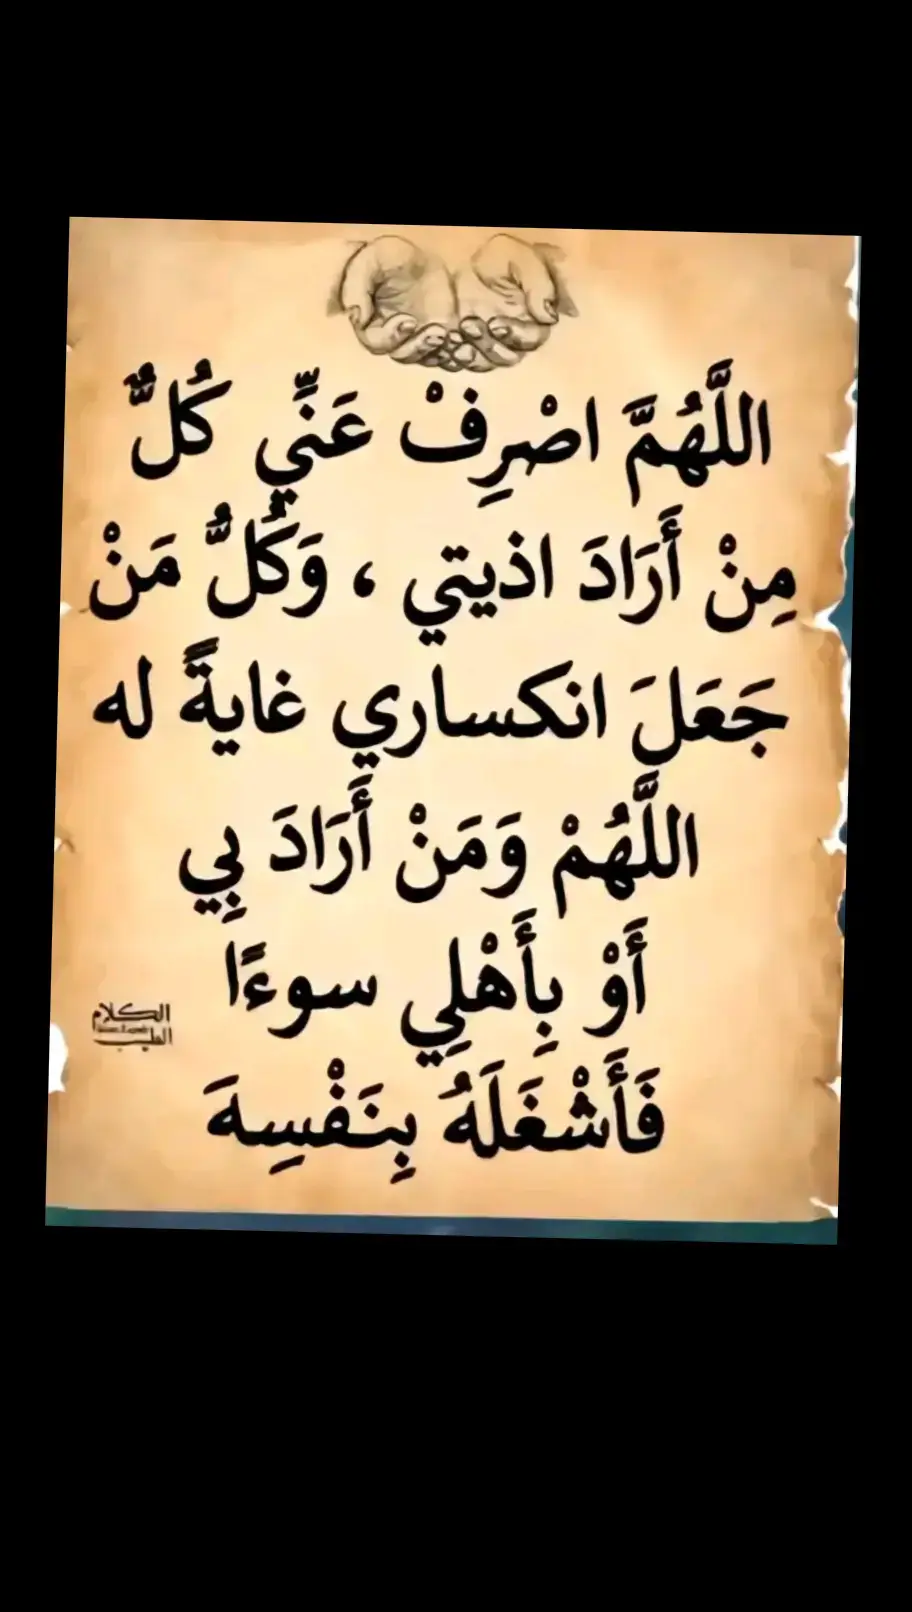 اللَّهُمَّ اصْرِفْ عَنِّي كُلٌّ
مِنْ أَرَادَ اذيتي ، وَكُلُّ مَنْ
جَعَلَ انكساري غايةً له
اللَّهُمْ وَمَنْ أَرَادَ بِي
أَوْ بِأَهْلِي سوءًا
فَأَشْغَلَهُ بِنَفْسِهَ
الكلام
الطيب